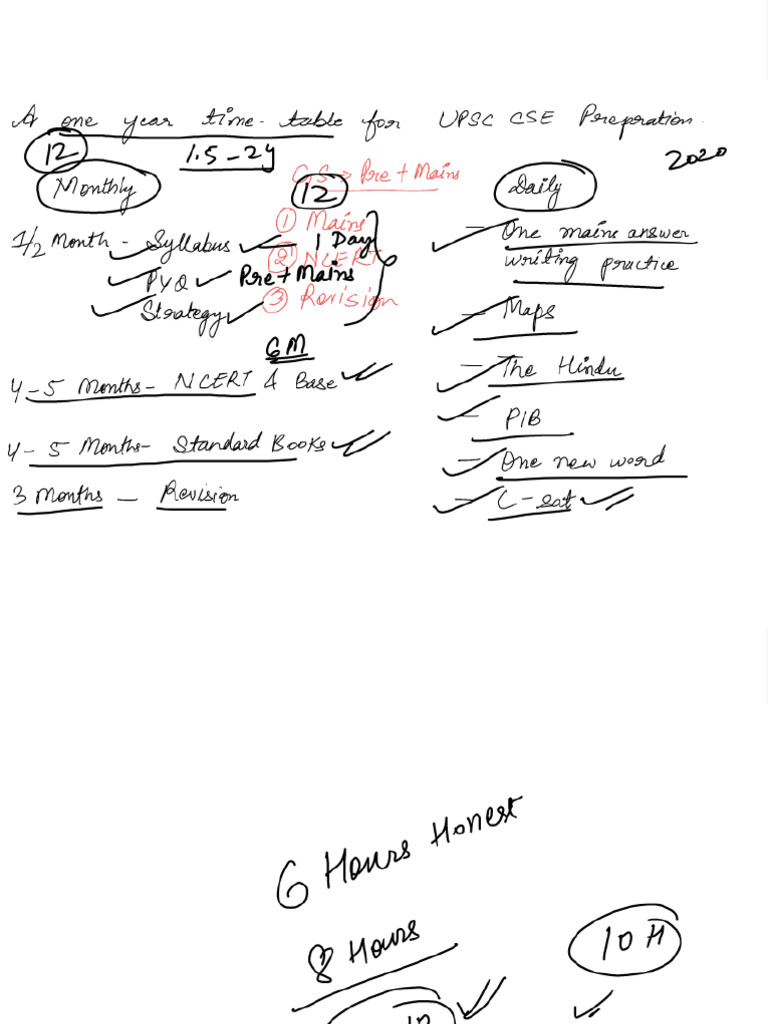 A one year time-table for UPSC CSE Prepration.
12 1.5-2y 2020
Monthly
G.S → Pre + Mains
12
① Mains
② NCERT
③ Revision
1/2 Month - Syllabus - 1 Day
PYQ Pre + Mains
Strategy
6
6M
4-5 Months - NCERT & Base
4-5 Months - Standard Books
3 Months - Revision
Daily
- One mains answer
writing practice
- Maps
- The Hindu
- PIB
- One new word
- C-sat
6 Hours Honest
8 Hours
10 H